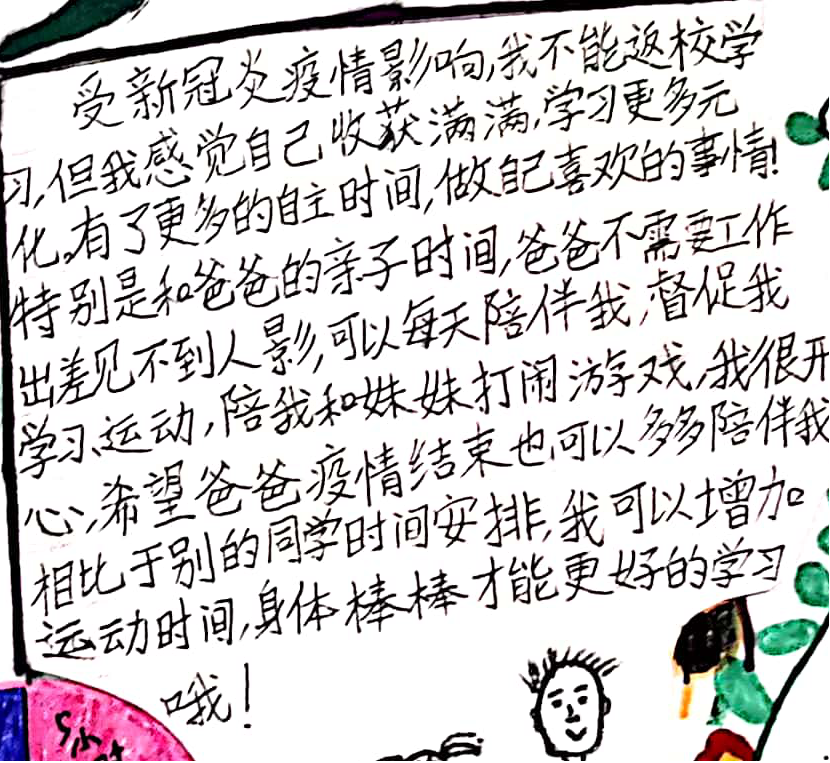 受新冠炎疫情影响,我不能返校学
习,但我感觉自己收获满满,学习更多元
化。有了更多的自主时间,做自己喜欢的事情!
特别是和爸爸的亲子时间,爸爸不需要工作
出差见不到人影,可以每天陪伴我,督促我
学习、运动,陪我和妹妹打闹游戏,我很开
心,希望爸爸疫情结束也可以多多陪伴我。
相比于别的同学时间安排,我可以增加
运动时间,身体棒棒才能更好的学习
哦!
5小